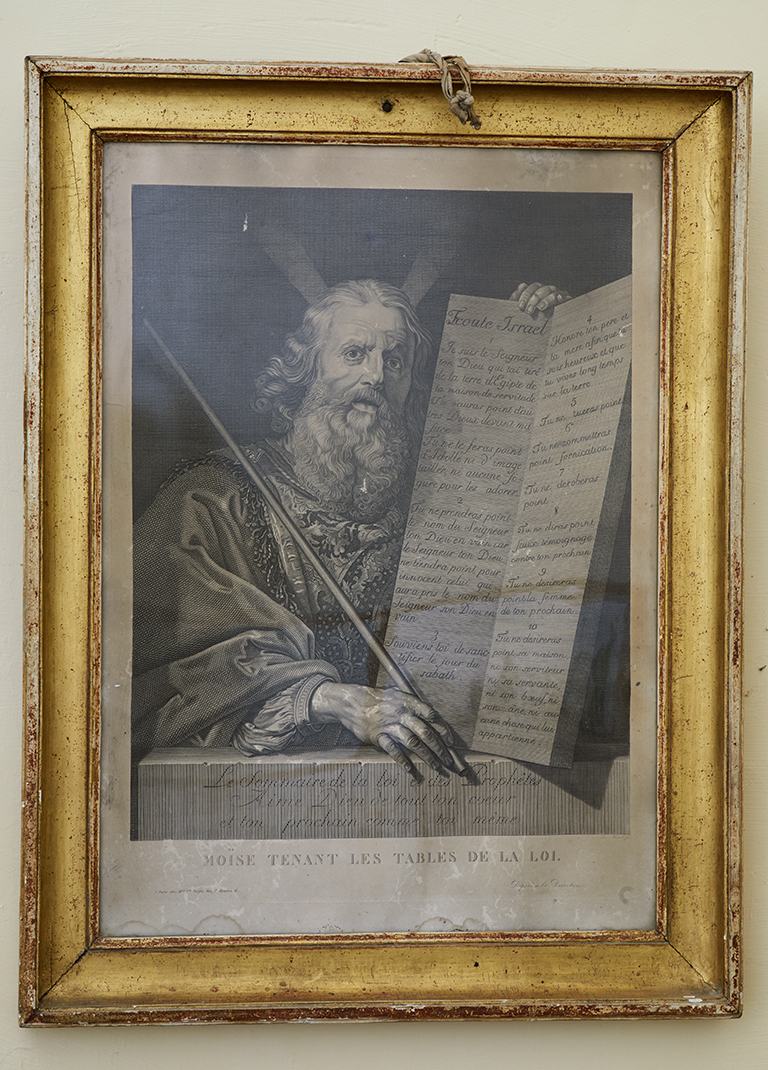 Ecoute Israel
1
Je suis le Seigneur
ton Dieu qui tai tiré
de la terre d'Egipte de
la maison de servitude
Tu nauras point d'au
res Dieux devant ma
face
Tu ne te feras point
d'Idolle ni d'image
taillée, ni aucune fi
gure pour les adorer
2
Tu ne prendras point
le nom du Seigneur
ton Dieu en vain car
le Seigneur ton Dieu
ne tiendra point pour
innocent celui qui
aura pris le nom du
Seigneur son Dieu en
vain
3
Souviens toi de sanc
tifier le jour du
sabath
4
Honore ton pere et
ta mere afin que tu
sois heureux et que
tu vives long temps
sur la terre.
5
Tu ne tueras point
6
Tu ne commettras
point fornication.
7
Tu ne deroberas
point
8
Tu ne diras point
faux témoignage
contre ton prochain
9
Tu ne desireras
point la femme
de ton prochain.
10
Tu ne desireras
point sa maison
ni son serviteur
ni sa servante,
ni son bœuf, ni
son âne, ni au
cune chose qui lui
appartienne.
Le Sommaire de la loi et des Prophètes
Aime Dieu de tout ton coeur
et ton prochain comme toi même
MOÏSE TENANT LES TABLES DE LA LOI.
Déposé à la Direction